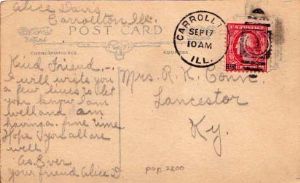 Alice Davis
Carrollton Ills.
POST CARD
CORRESPONDENCE
CARROLLT
SEP 17
10 AM
ILL.
Kind Friend
I will write you
a few lines to let
you know I am
well and am
having a fine time
Hope you all are
well
As Ever
your friend Alice D.
Mrs. R. K.
Lancester
Ky.